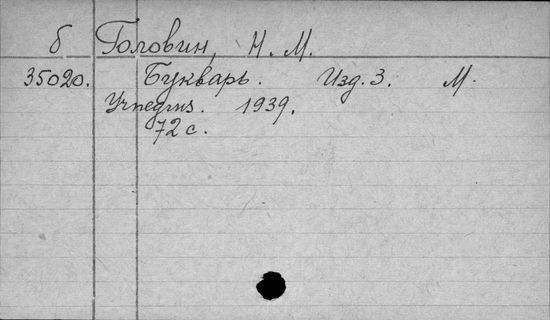 б Головин, Н. М.
35020. Букварь. Изд. 3. М.
Учпедгиз. 1939.
72 с.